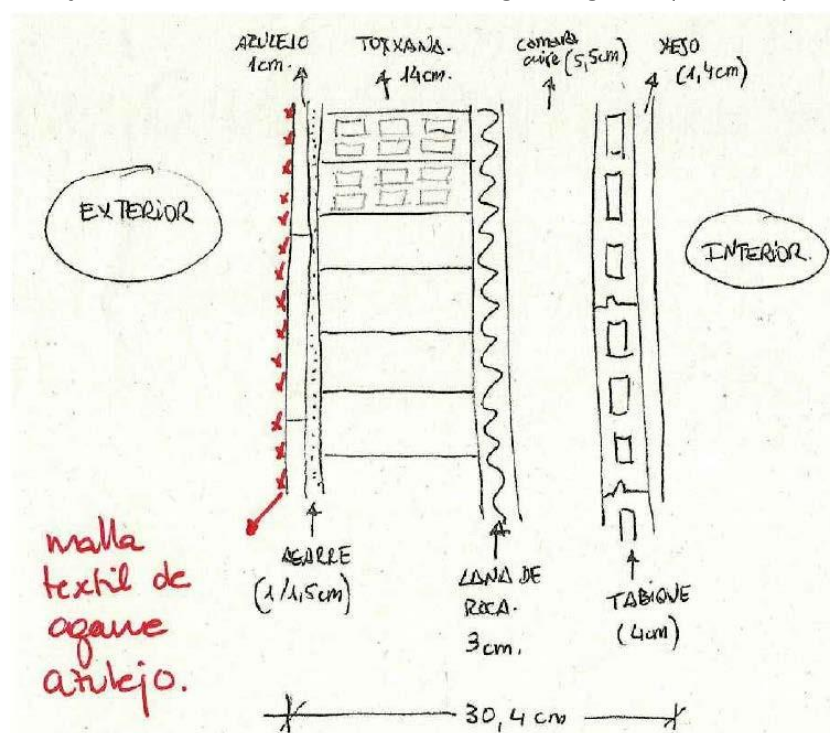 AZULEJO
1cm.
TOXXANA.
14cm.
camara
aire (5,5cm)
YESO
(1,4cm)
EXTERIOR
INTERIOR.
AGARRE
(1/1,5cm)
LANA DE
ROCA.
3cm.
TABIQUE
(4cm)
malla
textil de
agarre
azulejo.
30,4 cm